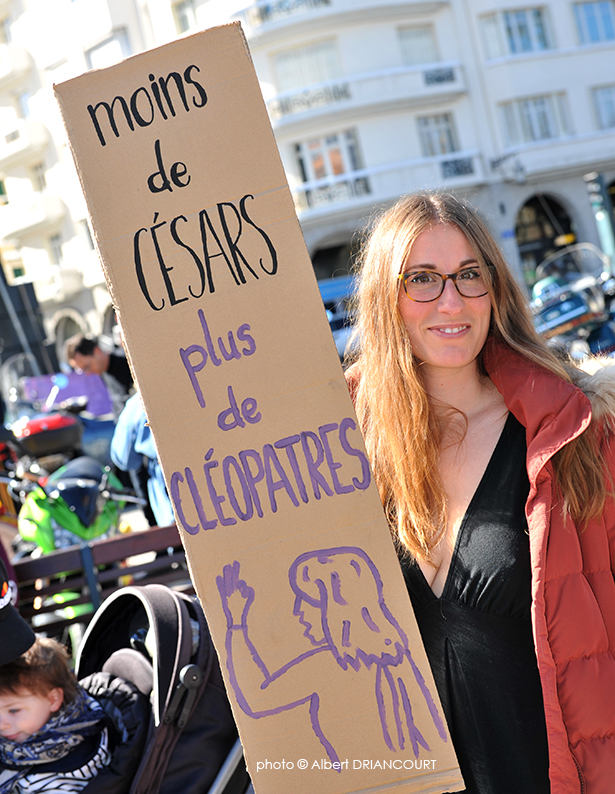 moins
de
CÉSARS
plus
de
CLÉOPATRES
photo © Albert DRIANCOURT